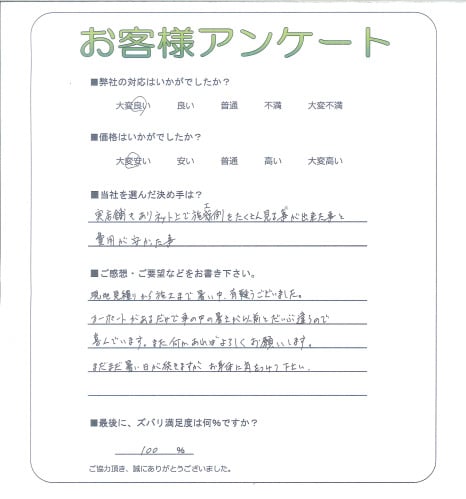 お客様アンケート
■弊社の対応はいかがでしたか？
大変良い　良い　普通　不満　大変不満
■価格はいかがでしたか？
大変安い　安い　普通　高い　大変高い
■当社を選んだ決め手は？
実店舗もありネット上で施工例をたくさん見る事が出来た事と
費用が安かった事
■ご感想・ご要望などをお書き下さい。
現地見積りから施工まで暑い中、有難うございました。
カーポートがあるだけで車の中の暑さが以前とだいぶ違うので
喜んでいます。また何かあればよろしくお願いします。
まだまだ暑い日が続きますが お身体に気をつけて下さい。
■最後に、ズバリ満足度は何％ですか？
100 ％
ご協力頂き、誠にありがとうございました。